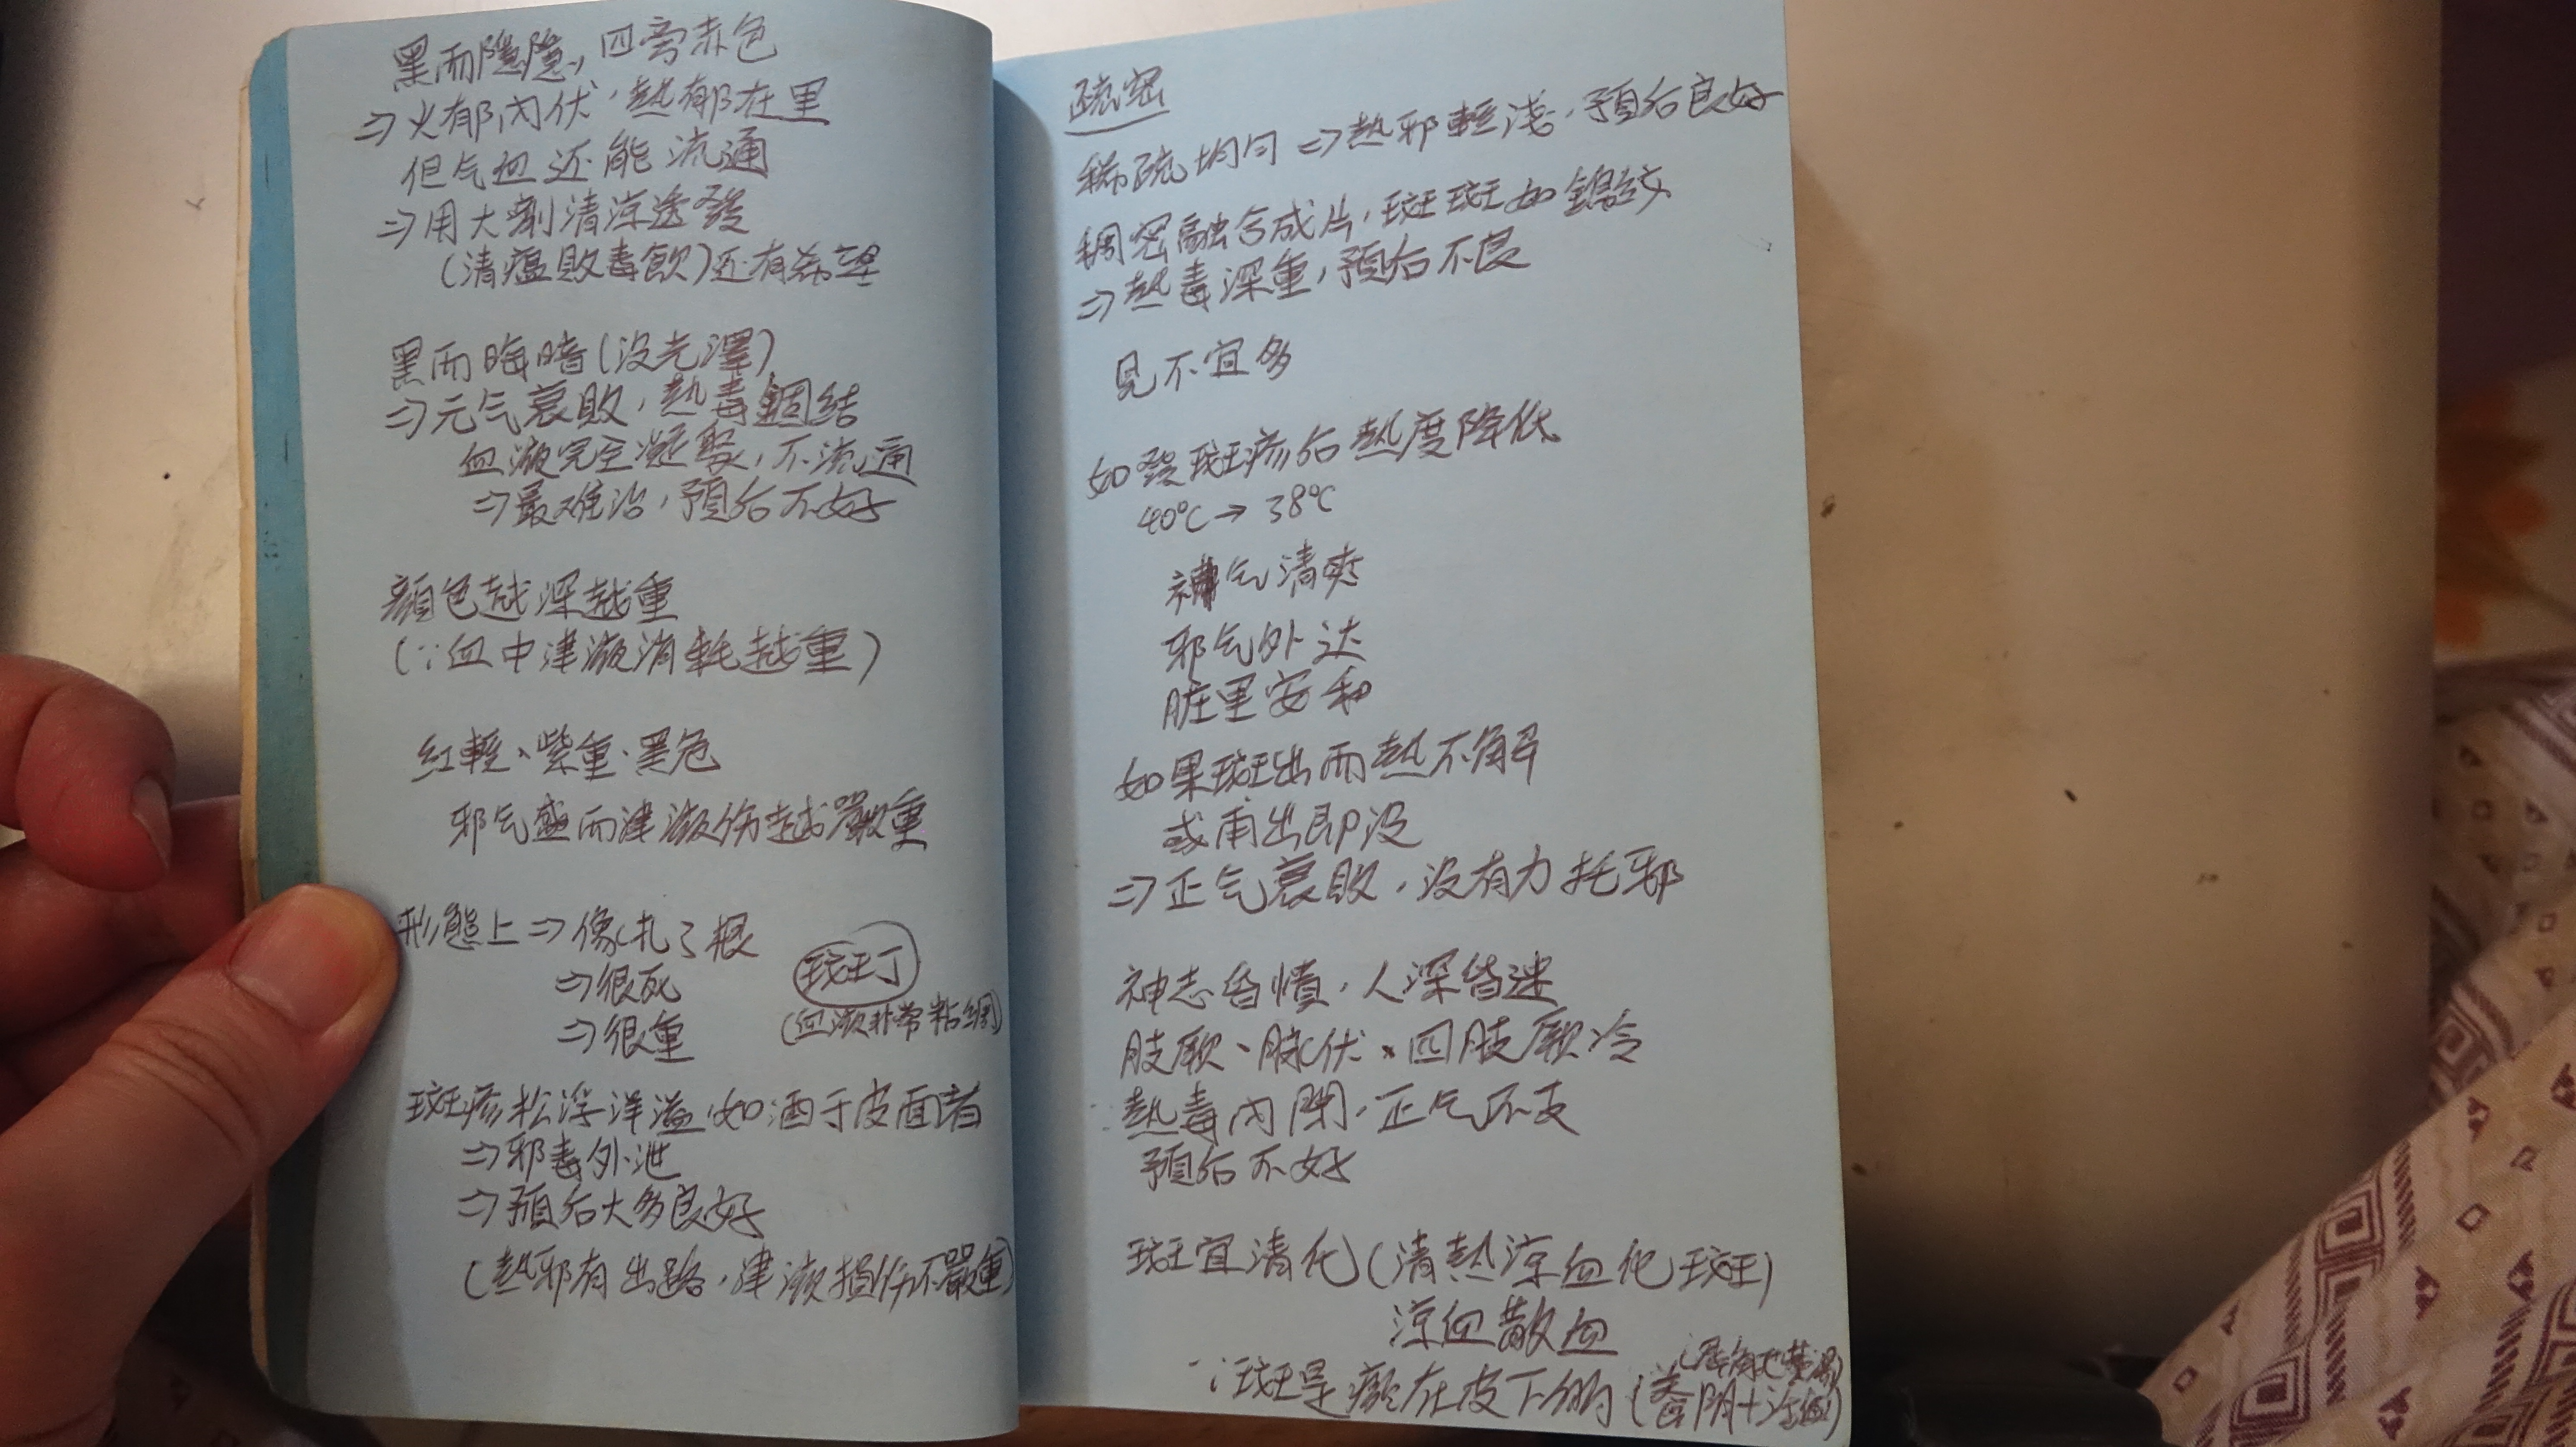 黑而隱隱，四旁赤色
⇒火郁内伏，熱郁在里
但气血还能流通
⇒用大劑清涼透發
(清瘟敗毒飲)还有希望
黑而晦暗(没光澤)
⇒元气衰敗，熱毒錮結
血液完全凝聚，不流通
⇒最难治，預后不好
顏色越深越重
(∵血中津液消耗越重)
紅輕、紫重、黑危
邪气盛而津液伤越嚴重
形態上⇒像扎了根
⇒很死
斑丁
⇒很重
(血液非常粘稠)
斑疹松浮洋溢，如洒于皮面者
⇒邪毒外泄
⇒預后大多良好
(熱邪有出路，津液損伤不嚴重)
疏密
稀疏均匀⇒熱邪輕淺，預后良好
稠密融合成片，斑斑如錦紋
⇒熱毒深重，預后不良
見不宜多
如發斑疹后熱度降低
40°C→38°C
神气清爽
邪气外达
脏里安和
如果斑出而熱不解
或甫出即没
⇒正气衰敗，没有力托邪
神志昏憒，人深昏迷
肢厥、脉伏、四肢厥冷
熱毒内閉，正气不支
預后不好
斑宜清化(清熱涼血化斑)
涼血散血
(犀角地黃湯)
∵斑是瘀在皮下的(養阴+活血)